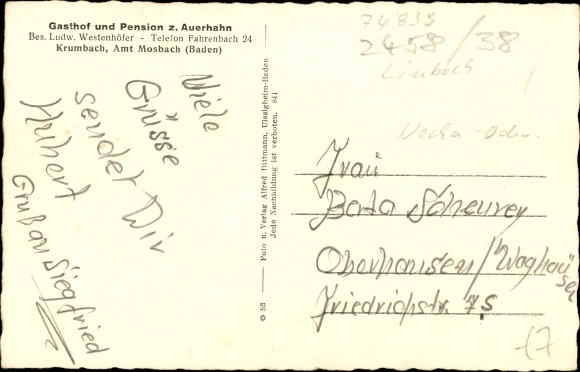 Gasthof und Pension z. Auerhahn
Bes. Ludw. Westenhöfer - Telefon Fahrenbach 24
Krumbach, Amt Mosbach (Baden)
Viele
Grüsse
sendet Dir
Hubert
Gruß an Siegfried
Foto u. Verlag Alfred Dittmann, Uissigheim-Baden
Jede Nachbildung ist verboten. 841
© 53
74838
2458/38
Limbach
Necka-Odw.
Frau
Berta Scheurer
Oberhausen/Waghäu
sel
Friedrichstr. 75
17